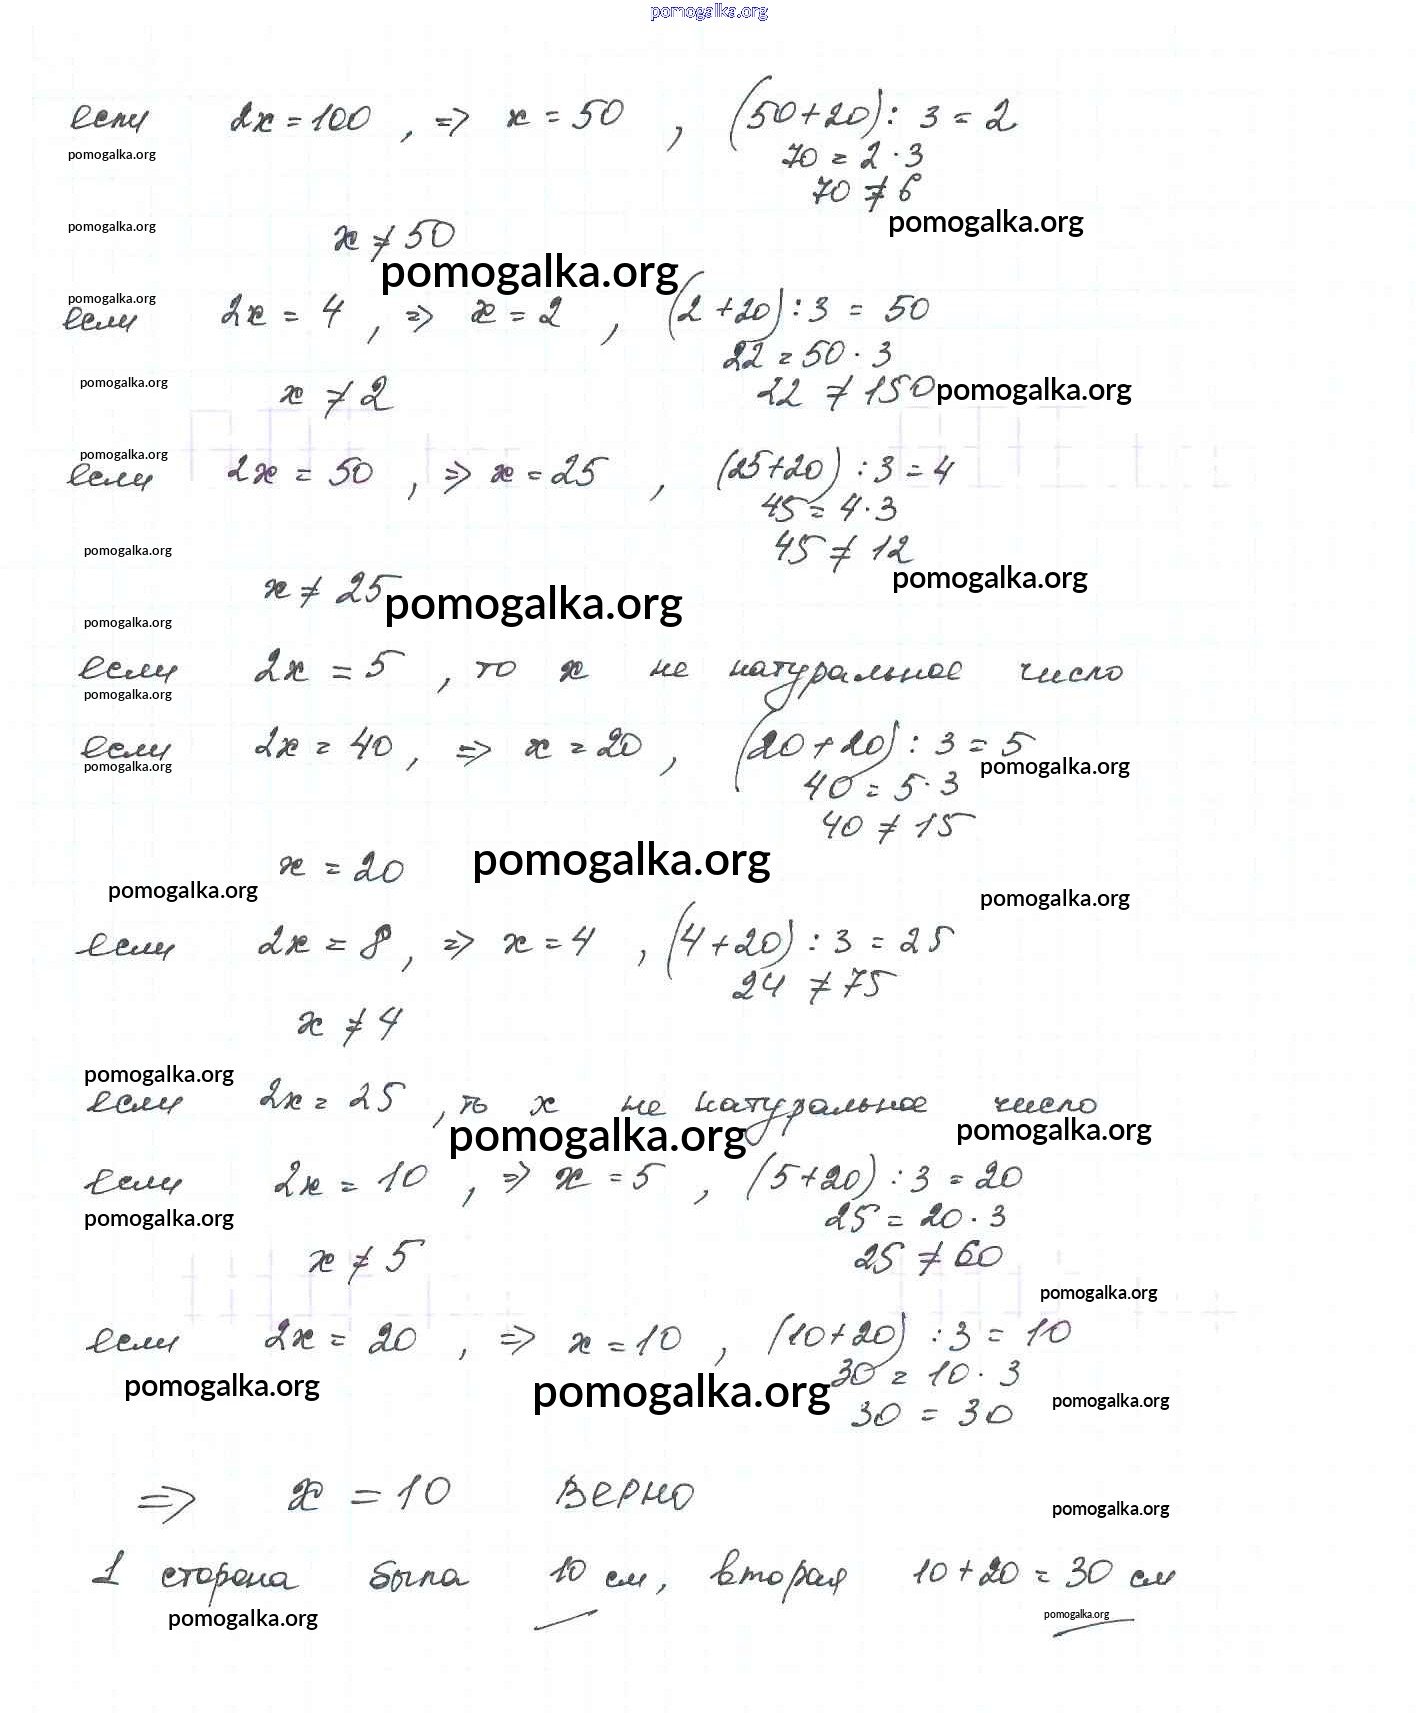 pomogalka.org
если 2x = 100 , => x = 50 , (50+20) : 3 = 2
pomogalka.org
70 = 2 · 3
70 ≠ 6
pomogalka.org
pomogalka.org
x ≠ 50
pomogalka.org
pomogalka.org
если 2x = 4 , => x = 2 , (2+20) : 3 = 50
22 = 50 · 3
pomogalka.org
x ≠ 2
22 ≠ 150 pomogalka.org
pomogalka.org
если 2x = 50 , => x = 25 , (25+20) : 3 = 4
45 = 4 · 3
pomogalka.org
45 ≠ 12
pomogalka.org
x ≠ 25 pomogalka.org
pomogalka.org
если 2x = 5 , то x не натуральное число
pomogalka.org
если 2x = 40 , => x = 20 , (20+20) : 3 = 5
pomogalka.org
pomogalka.org
40 = 5 · 3
40 ≠ 15
x = 20 pomogalka.org
pomogalka.org
pomogalka.org
если 2x = 8 , => x = 4 , (4+20) : 3 = 25
24 ≠ 75
x ≠ 4
pomogalka.org
если 2x = 25 , то x не натуральное число
pomogalka.org
pomogalka.org
если 2x = 10 , => x = 5 , (5+20) : 3 = 20
pomogalka.org
25 = 20 · 3
x ≠ 5
25 ≠ 60
pomogalka.org
если 2x = 20 , => x = 10 , (10+20) : 3 = 10
pomogalka.org
pomogalka.org
30 = 10 · 3
pomogalka.org
30 = 30
=> x = 10 верно
pomogalka.org
1 сторона была 10 см, вторая 10+20 = 30 см
pomogalka.org
pomogalka.org